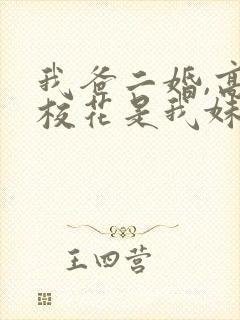 我爸二婚,高
校花是我妹
王四营